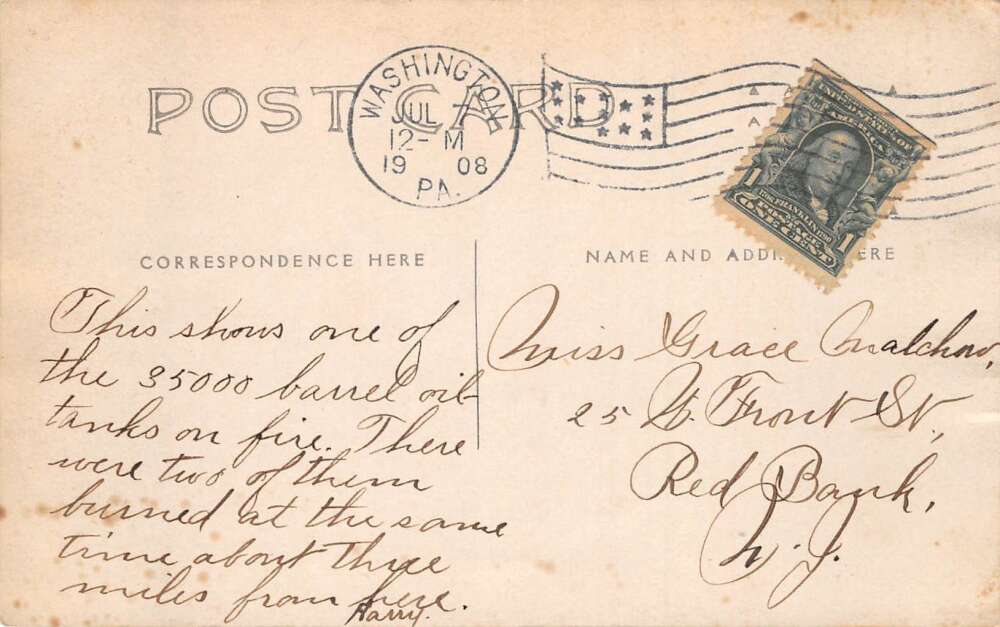 POST CARD
WASHINGTON,
JUL 7
12-M
19 08
PA.
UNITED STATES OF
AMERICA
1 1
1706 FRANKLIN 1790
POSTAGE
ONE CENT
CORRESPONDENCE HERE
This shows one of
the 35000 barrel oil
tanks on fire. There
were two of them
burned at the same
time about three
miles from here.
Harry.
NAME AND ADD ERE
Miss Grace Malchow,
25 W. Front St,
Red Bank,
N. J.